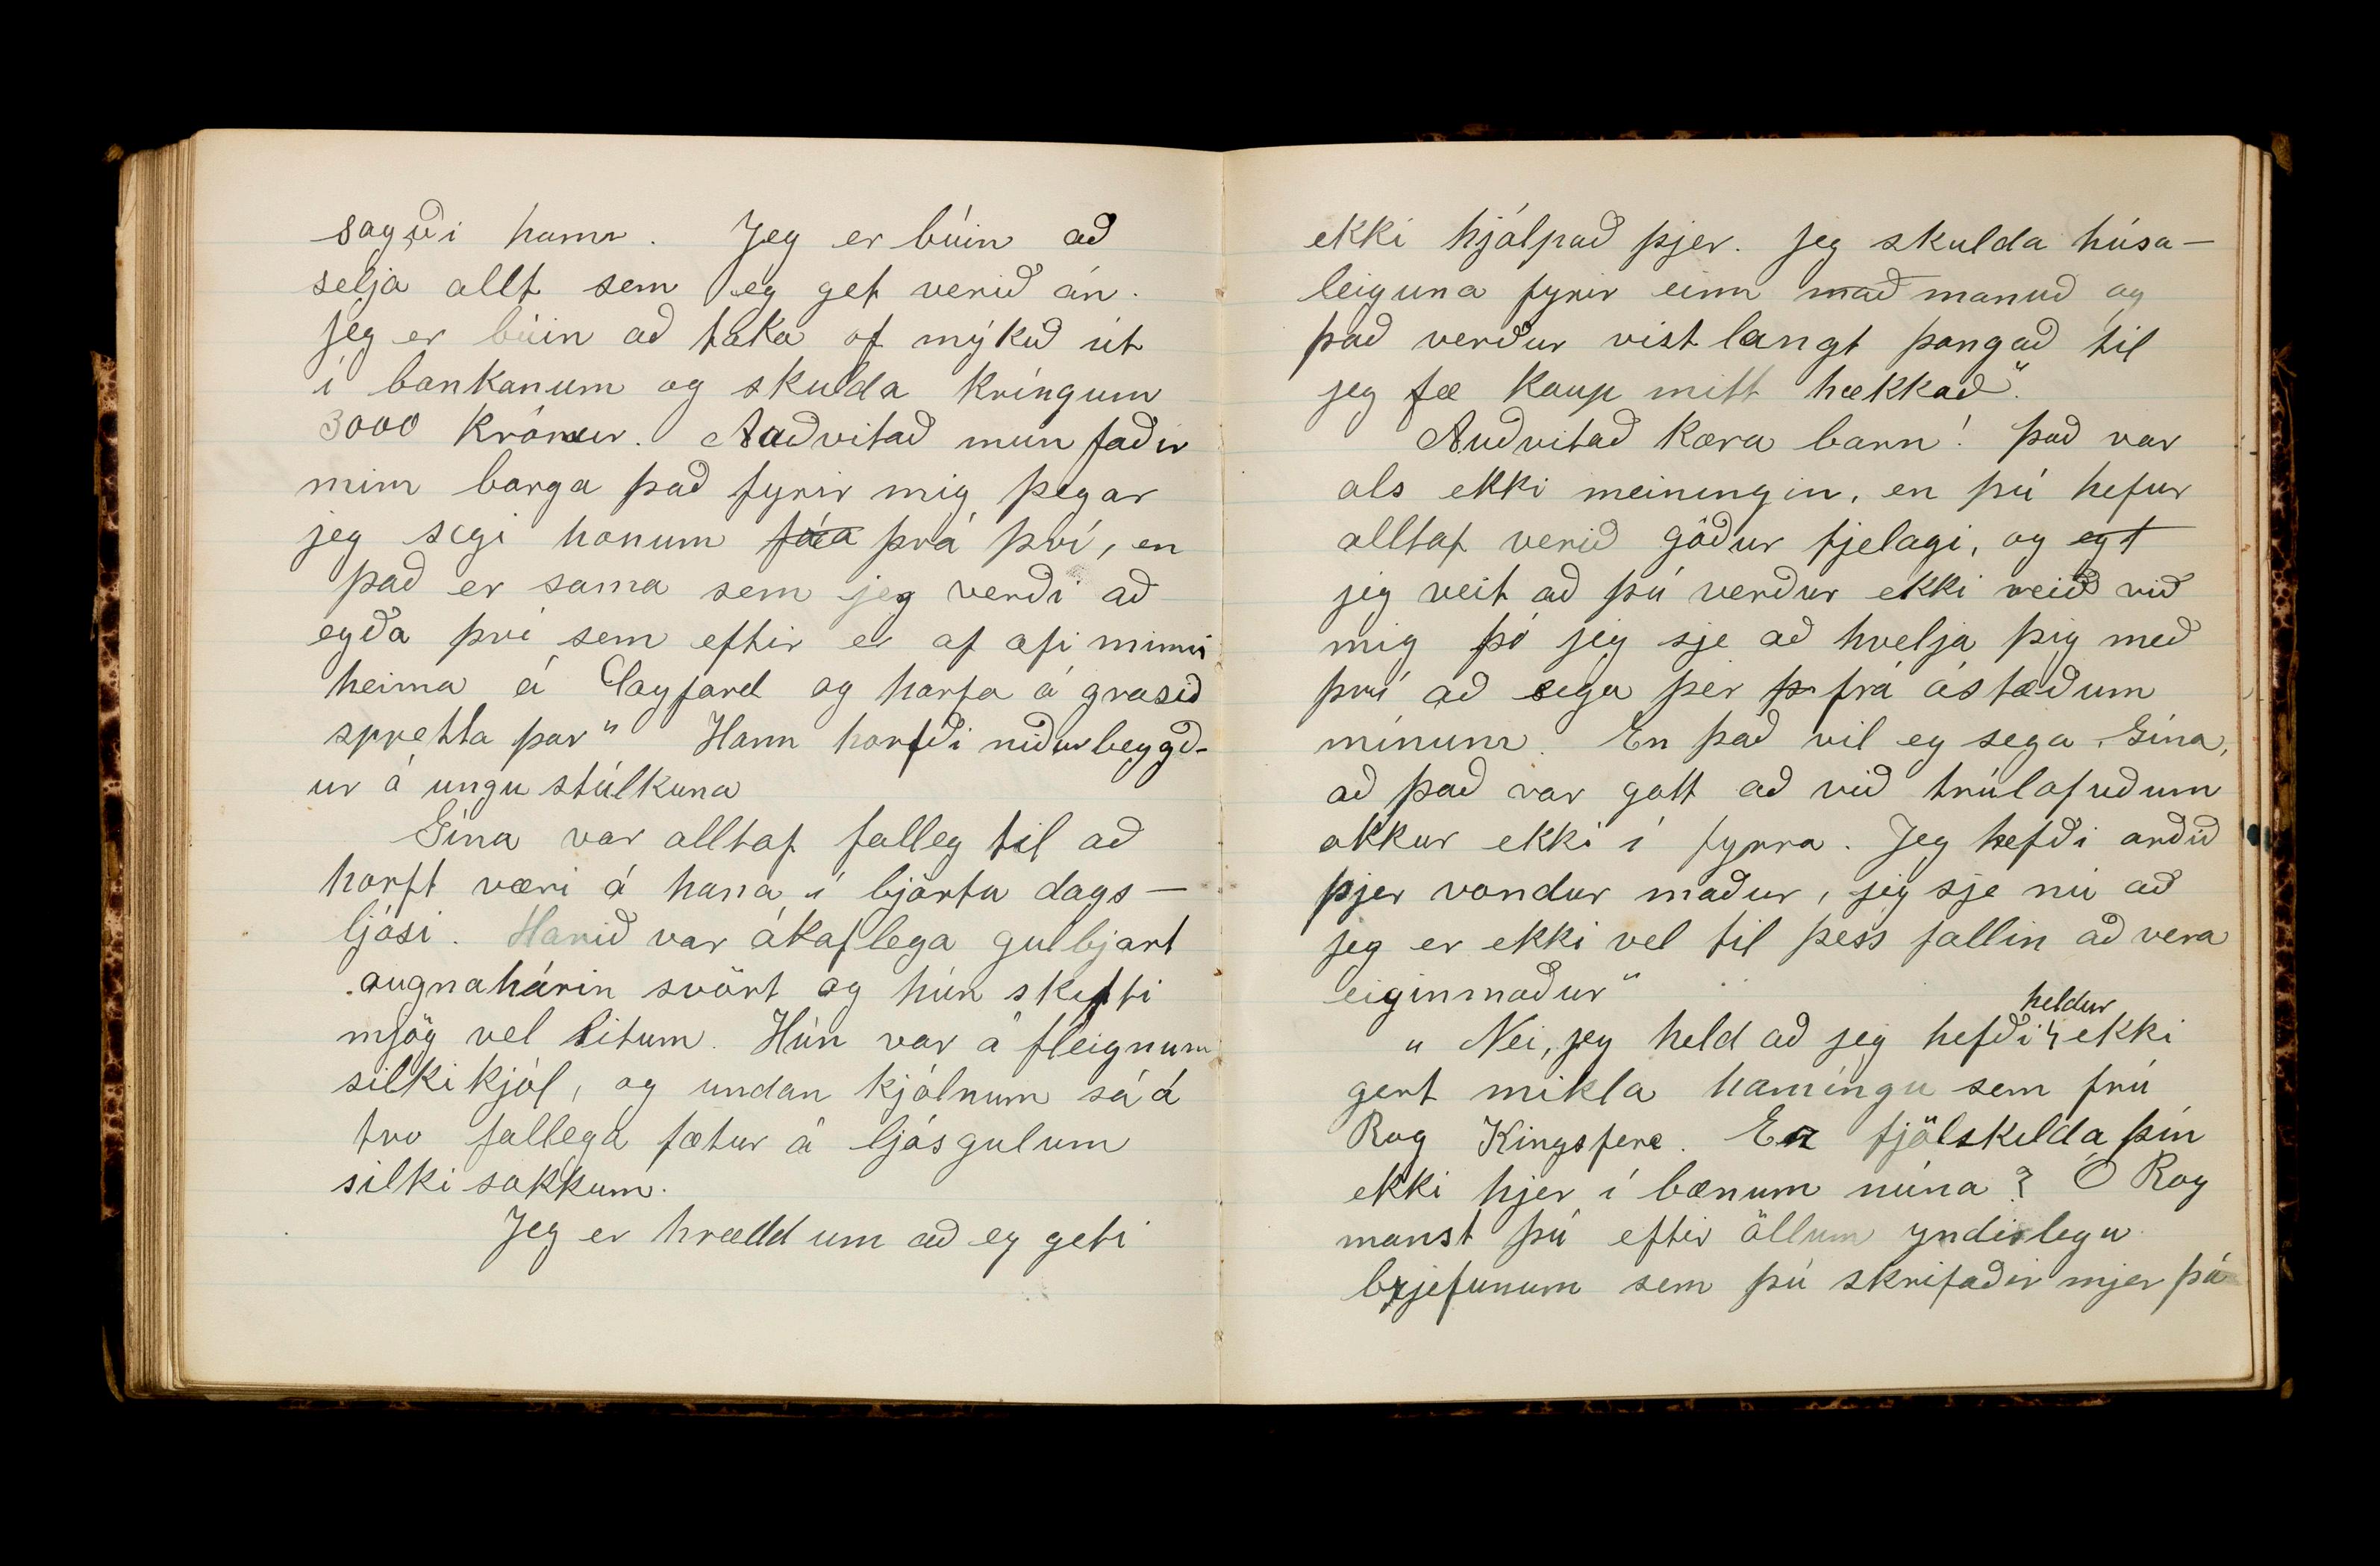 sagði hann. Jeg er búin að
selja allt sem eg get verið án.
jeg er búin að taka of mýkið út
í bankanum og skulda kringum
3000 krónur. Auðvitað mun faðir
minn borga það fyrir mig þegar
jeg segi honum fáa þrá því, en
það er sama sem jeg verði að
eyða því sem eftir er af æfi minni
heima á Clayfard og horfa á grasið
spretta þar" Hann horfði niðurbeygð-
ur á ungu stúlkuna
Gína var alltaf falleg til að
horft væri á hana í björtu dags-
ljósi. Harið var ákaflega gulbjart
augnahárin svört og hún skifti
mjög vel litum. Hún var á fleignum
silkikjól, og undan kjólnum sá á
tvo fallega fætur á ljósgulum
silkisokkum.
Jeg er hrædd um að eg geti
ekki hjálpað þjer. Jeg skulda húsa-
leiguna fyrir einn mað manuð og
það verður vist langt þangað til
jeg fæ kaup mitt hækkað".
Auðvitað kæra barn! það var
als ekki meiningin, en þú hefur
alltaf verið góður fjelagi, og egt
jeg veit að þú verður ekki reið við
mig þó jeg sje að kvelja þig með
því að sega þér þ frá ástæðum
mínum. En það vil eg sega Gína,
að það var gott að við trúlofuðum
okkur ekki í fyrra. Jeg hefði orðið
þjer vondur maður, jeg sje nú að
jeg er ekki vel til þess fallin að vera
eiginmaður"
heldur
"Nei, jeg held að jeg hefði ekki
gert mikla hamíngu sem frú
Rog Kingsfere. Er fjölskilda þín
ekki hjer í bænum núna? Ó Rog
manst þú eftir öllum yndislegu
brjefunum sem þú skrifaðir mjer þá